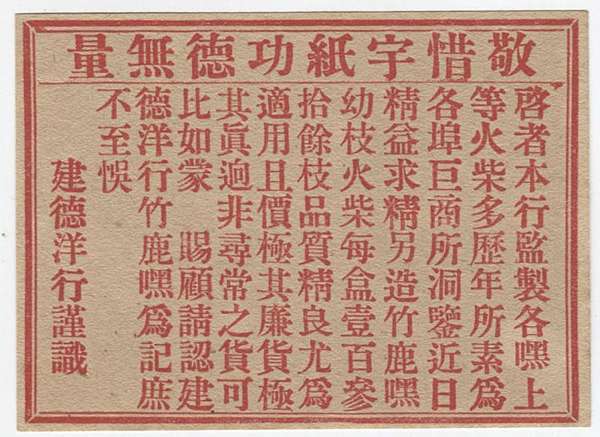 敬惜字紙功德無量
啓者本行監製各嘿上
等火柴多歷年所素爲
各埠巨商所洞鑒近日
精益求精另造竹鹿嘿
幼枝火柴每盒壹百參
拾餘枝品質精良尤爲
適用且價極其廉貨極
其眞迥非尋常之貨可
比如蒙　賜顧請認建
德洋行竹鹿嘿爲記庶
不至悞
建德洋行謹識